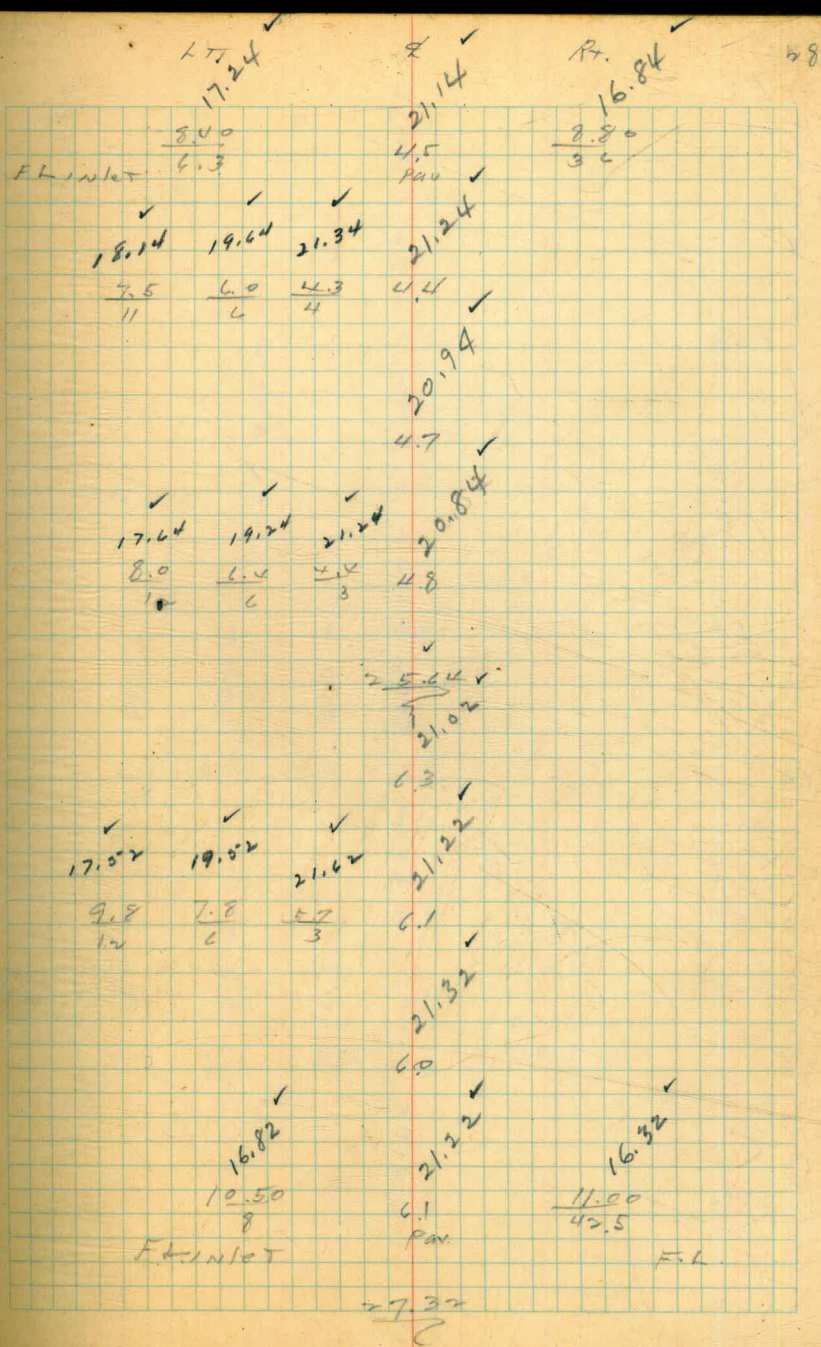 LT. ℄ Rt. 28
17.24 ✓ 21.14 ✓ 16.84 ✓
8.40 4.5 8.80
6.3 Pav 36
FL Inlet
18.14 ✓ 19.64 ✓ 21.34 ✓ 21.24 ✓
7.5 6.0 4.3 4.4
11 6 4
20.94 ✓
4.7
17.64 ✓ 19.24 ✓ 21.24 ✓ 20.84 ✓
8.0 6.4 4.4 4.8
12 6 3
25.64 ✓
21.02 ✓
6.3
17.52 ✓ 19.52 ✓ 21.62 ✓ 21.22 ✓
9.8 7.8 5.7 6.1
12 6 3
21.32 ✓
6.0
16.82 ✓ 21.22 ✓ 16.32 ✓
10.50 6.1 11.00
8 Pav. 42.5
FL Inlet F.L.
27.32